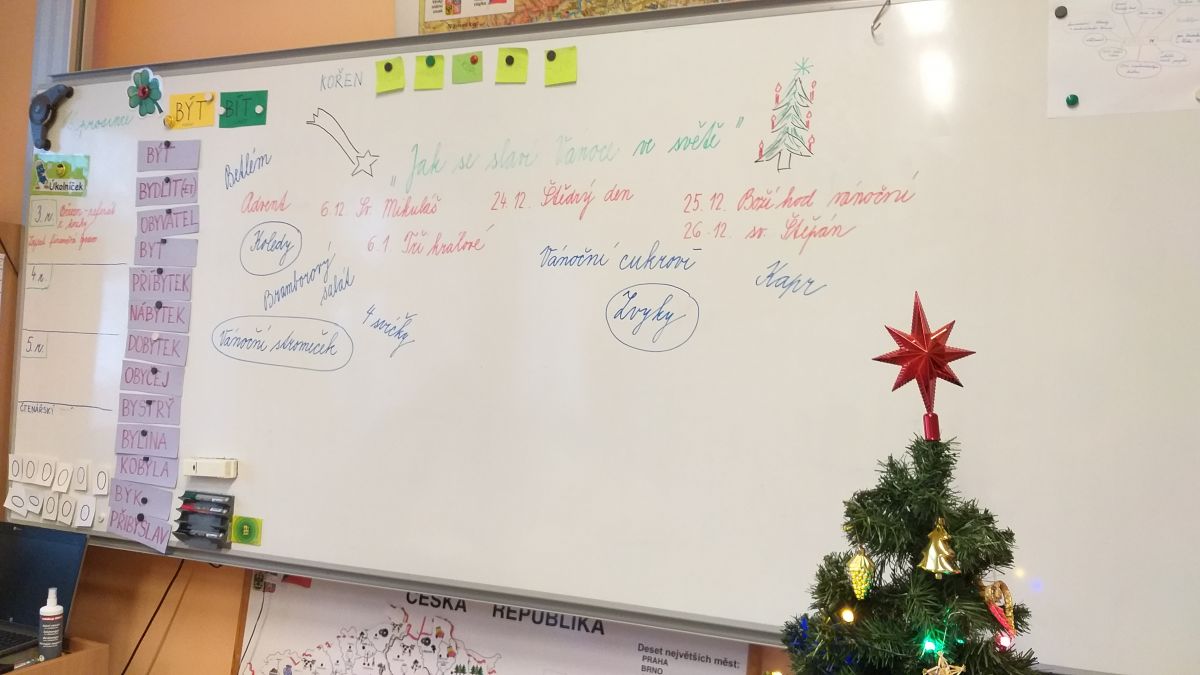 KOŘEN
BÝT
BÍT
prosinec
„Jak se slaví Vánoce ve světě"
Betlém
Advent
6.12. Sv. Mikuláš
24.12. Štědrý den
25.12. Boží hod vánoční
26.12. sv. Štěpán
6.1. Tři králové
Koledy
Vánoční cukroví
Kapr
Bramborový
salát
Zvyky
4 svíčky
Vánoční stromeček
Úkolníček
3.r.
4.r.
5.r.
ČTENÁŘSKÝ
BÝT
BYDLIT(ET)
OBYVATEL
BYT
PŘÍBYTEK
NÁBYTEK
DOBYTEK
OBYČEJ
BYSTRÝ
BYLINA
KOBYLA
BÝK
PŘIBYSLAV
ČESKÁ REPUBLIKA
Deset největších měst:
PRAHA
BRNO